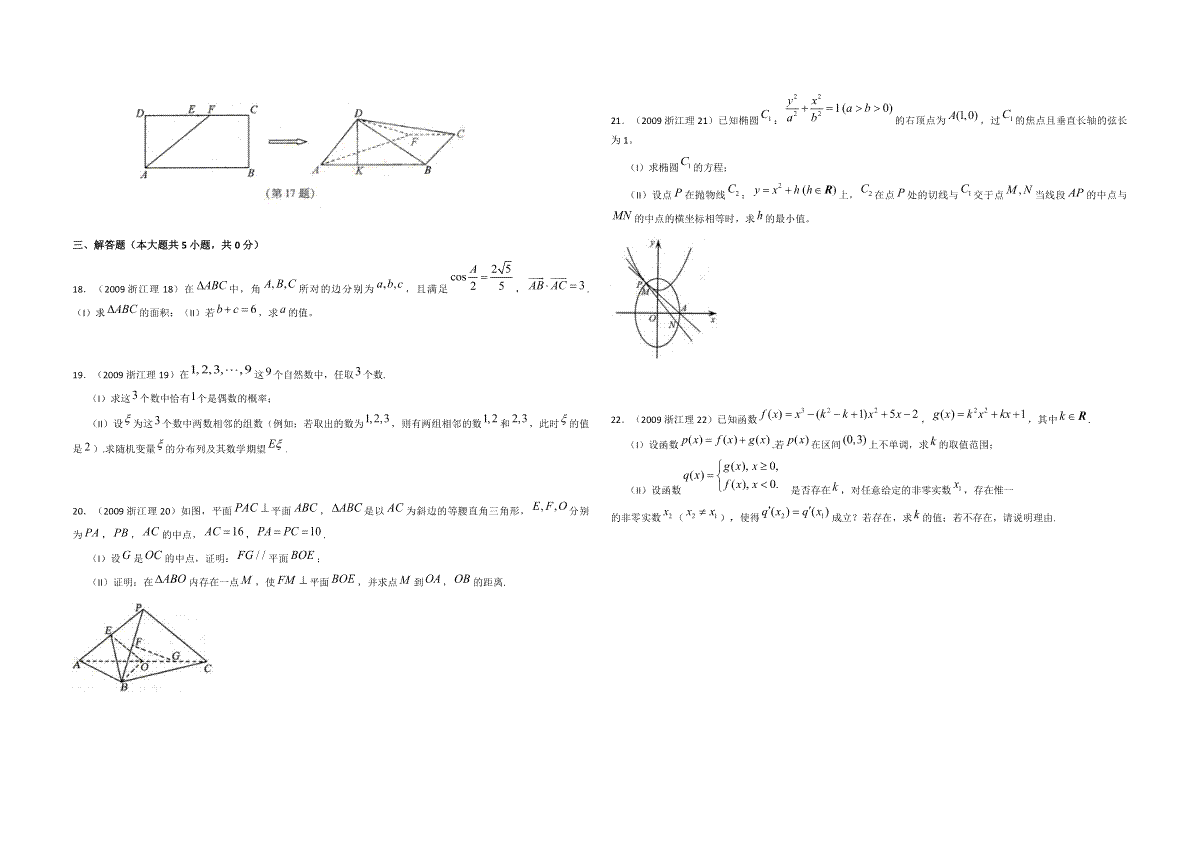 D E F C
A B
D C F
A K B
(第17题)
三、解答题（本大题共 5 小题，共 0 分）
18．（2009 浙江理 18）在 ΔABC 中，角 A, B, C 所对的边分别为 a, b, c ，且满足 cos A/2 = 2√5/5 ，AB · AC = 3 .
（I）求 ΔABC 的面积；（II）若 b + c = 6 ，求 a 的值。
19．（2009 浙江理 19）在 1, 2, 3, ⋯, 9 这 9 个自然数中，任取 3 个数.
（I）求这 3 个数中恰有 1 个是偶数的概率；
（II）设 ξ 为这 3 个数中两数相邻的组数（例如：若取出的数为 1, 2, 3 ，则有两组相邻的数 1, 2 和 2, 3 ，此时 ξ 的值
是 2 ）.求随机变量 ξ 的分布列及其数学期望 Eξ .
20．（2009 浙江理 20）如图，平面 PAC ⊥ 平面 ABC ，ΔABC 是以 AC 为斜边的等腰直角三角形，E, F, O 分别
为 PA ，PB ，AC 的中点，AC = 16 ，PA = PC = 10 .
（I）设 G 是 OC 的中点，证明：FG // 平面 BOE ；
（II）证明：在 ΔABO 内存在一点 M ，使 FM ⊥ 平面 BOE ，并求点 M 到 OA ，OB 的距离.
P
E F
A O G C
B
21．（2009 浙江理 21）已知椭圆 C₁ ：y²/a² + x²/b² = 1 (a > b > 0) 的右顶点为 A(1,0) ，过 C₁ 的焦点且垂直长轴的弦长
为 1。
（I）求椭圆 C₁ 的方程；
（II）设点 P 在抛物线 C₂ ：y = x² + h (h ∈ R) 上，C₂ 在点 P 处的切线与 C₁ 交于点 M , N 当线段 AP 的中点与
MN 的中点的横坐标相等时，求 h 的最小值。
y
P
M
O A
N x
22．（2009 浙江理 22）已知函数 f(x) = x³ − (k² − k + 1)x² + 5x − 2 ，g(x) = k²x² + kx + 1 ，其中 k ∈ R .
（I）设函数 p(x) = f(x) + g(x) .若 p(x) 在区间 (0,3) 上不单调，求 k 的取值范围；
（II）设函数 q(x) = { g(x), x ≥ 0, f(x), x < 0. 是否存在 k ，对任意给定的非零实数 x₁ ，存在惟一
的非零实数 x₂ （ x₂ ≠ x₁ ），使得 q′(x₂) = q′(x₁) 成立？若存在，求 k 的值；若不存在，请说明理由.